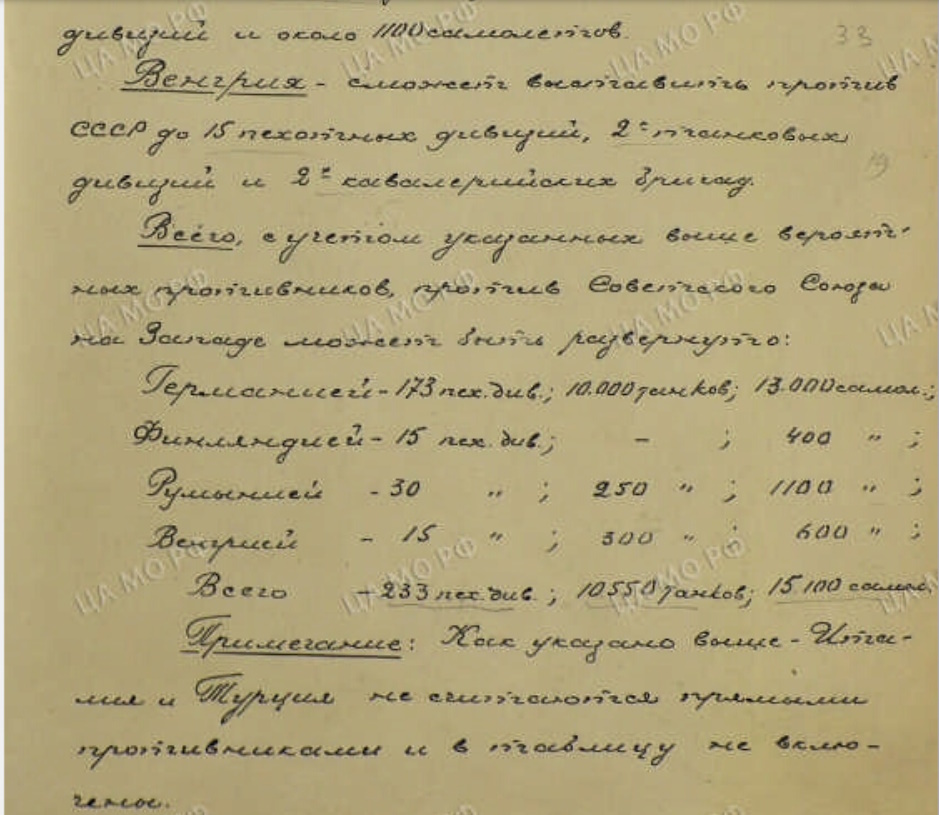 дивизий и около 1100 самолетов.
33
Венгрия - сможет выставить против
СССР до 15 пехотных дивизий, 2х танковых
19
дивизий и 2х кавалерийских бригад.
Всего, с учетом указанных выше вероят-
ных противников, против Советского Союза
на Западе может быть развернуто:
Германией - 173 пех. див.; 10.000 танков; 13.000 самол.;
Финляндией - 15 пех. див.; - ; 400 " ;
Румынией - 30 " ; 250 " ; 1100 " ;
Венгрией - 15 " ; 300 " ; 600 " ;
Всего - 233 пех. див.; 10550 танков; 15.100 самол.
Примечание: Как указано выше - Ита-
лия и Турция не считаются прямыми
противниками и в таблицу не вклю-
чены.
ЦА МО РФ
ЦА МО РФ
ЦА МО РФ
ЦА МО РФ
ЦА МО РФ
ЦА МО РФ
ЦА МО РФ
ЦА МО РФ
ЦА МО РФ